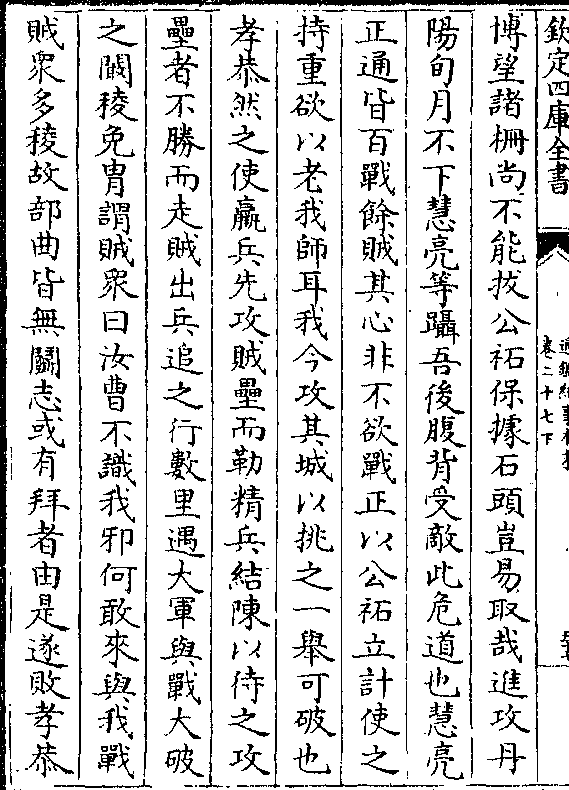 欽定四庫全書
卷二十七下
博望諸柵尚不能拔公祏保據石頭豈易取哉進攻丹
陽旬月不下慧亮等躡吾後腹背受敵此危道也慧亮
正通皆百戰餘賊其心非不欲戰正以公祏立計使之
持重欲以老我師耳我今攻其城以挑之一舉可破也
孝恭然之使羸兵先攻賊壘而勒精兵結陳以待之攻
壘者不勝而走賊出兵追之行數里遇大軍與戰大破
之闞稜免冑謂賊眾曰汝曹不識我邪何敢來與我戰
賊眾多稜故部曲皆無鬭志或有拜者由是遂敗孝恭